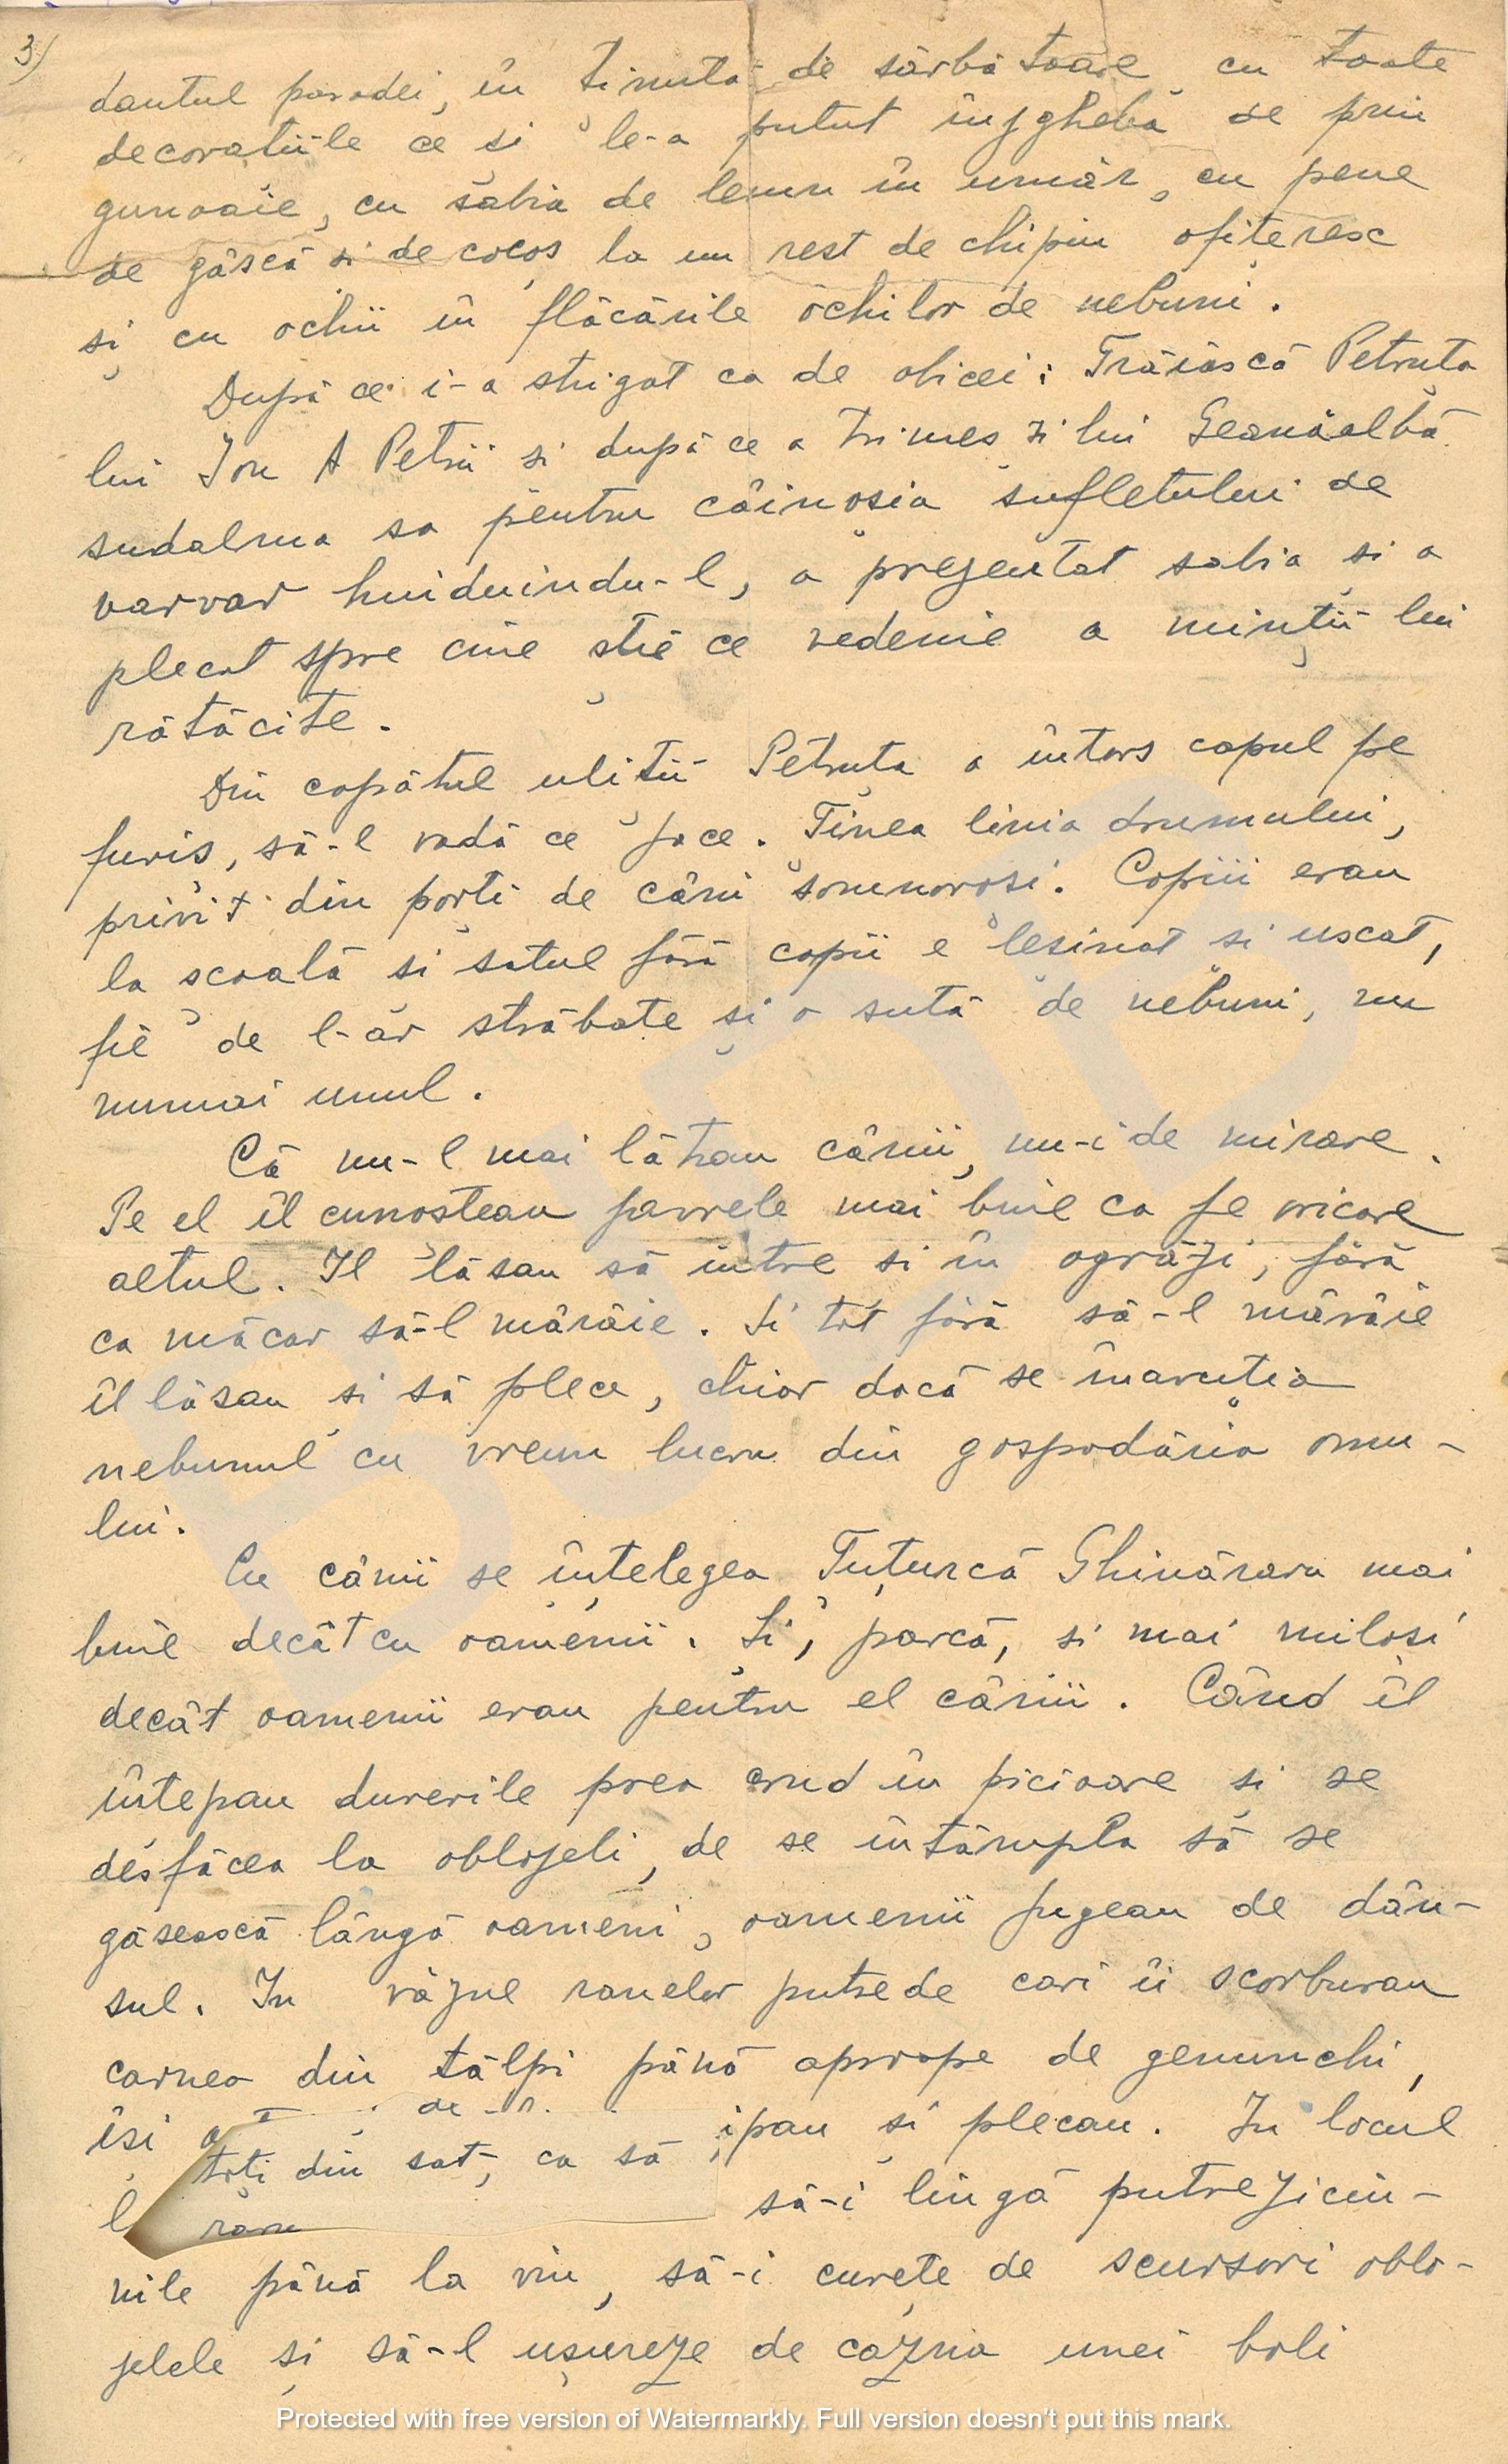 3)
dantul paradei, în ținuta de sărbătoare cu toate
decorațiile ce și le-a putut înjgheba de prin
gunoaie, cu sabia de lemn în umăr, cu pene
de gâscă și de cocoș la un rest de chipiu ofițeresc
și cu ochii în flăcările ochilor de nebuni.
După ce i-a strigat ca de obicei: Trăiască Petruța
lui Ion A Petrii și după ce a trimes și lui Geanăalbă
sudalma sa pentru câinoșia sufletului de
varvar huiduindu-l, a prezentat sabia și a
plecat spre cine știe ce vedenie a minții lui
rătăcite.
Din capătul uliții Petruța a întors capul pe
furiș, să-l vadă ce face. Ținea linia drumului,
privit din porți de câni somnoroși. Copiii erau
la școală și satul fără copii e leșinat și uscat,
fie de l-ar străbate și o sută de nebuni, nu
numai unul.
Că nu-l mai lătrau cânii, nu-i de mirare.
Pe el îl cunoșteau javrele mai bine ca pe oricare
altul. Il lăsau să intre și în ogrăzi, fără
ca măcar să-l mârâie. Și tot fără să-l mârâie
îl lăsau și să plece, chiar dacă se înavuția
nebunul cu vreun lucru din gospodăria omu-
lui.
Cu cânii se înțelegea Tuțurcă Ghinăraru mai
bine decât cu oamenii. Și, parcă, și mai miloși
decât oamenii erau pentru el cânii. Când îl
înțepau durerile prea crud în picioare și se
desfăcea la oblojeli, de se întâmpla să se
găsească lângă oameni, oamenii fugeau de dân-
sul. In văzul ranelor putrede cari îi scorburau
carnea din tălpi până aproape de genunchi,
își ipau și plecau. In locul
l toți din sat, ca să să-i lingă putreziciu-
nile până la viu, să-i curețe de scursori oblo-
jelele și să-l ușureze de cazna unei boli
Protected with free version of Watermarkly. Full version doesn't put this mark.